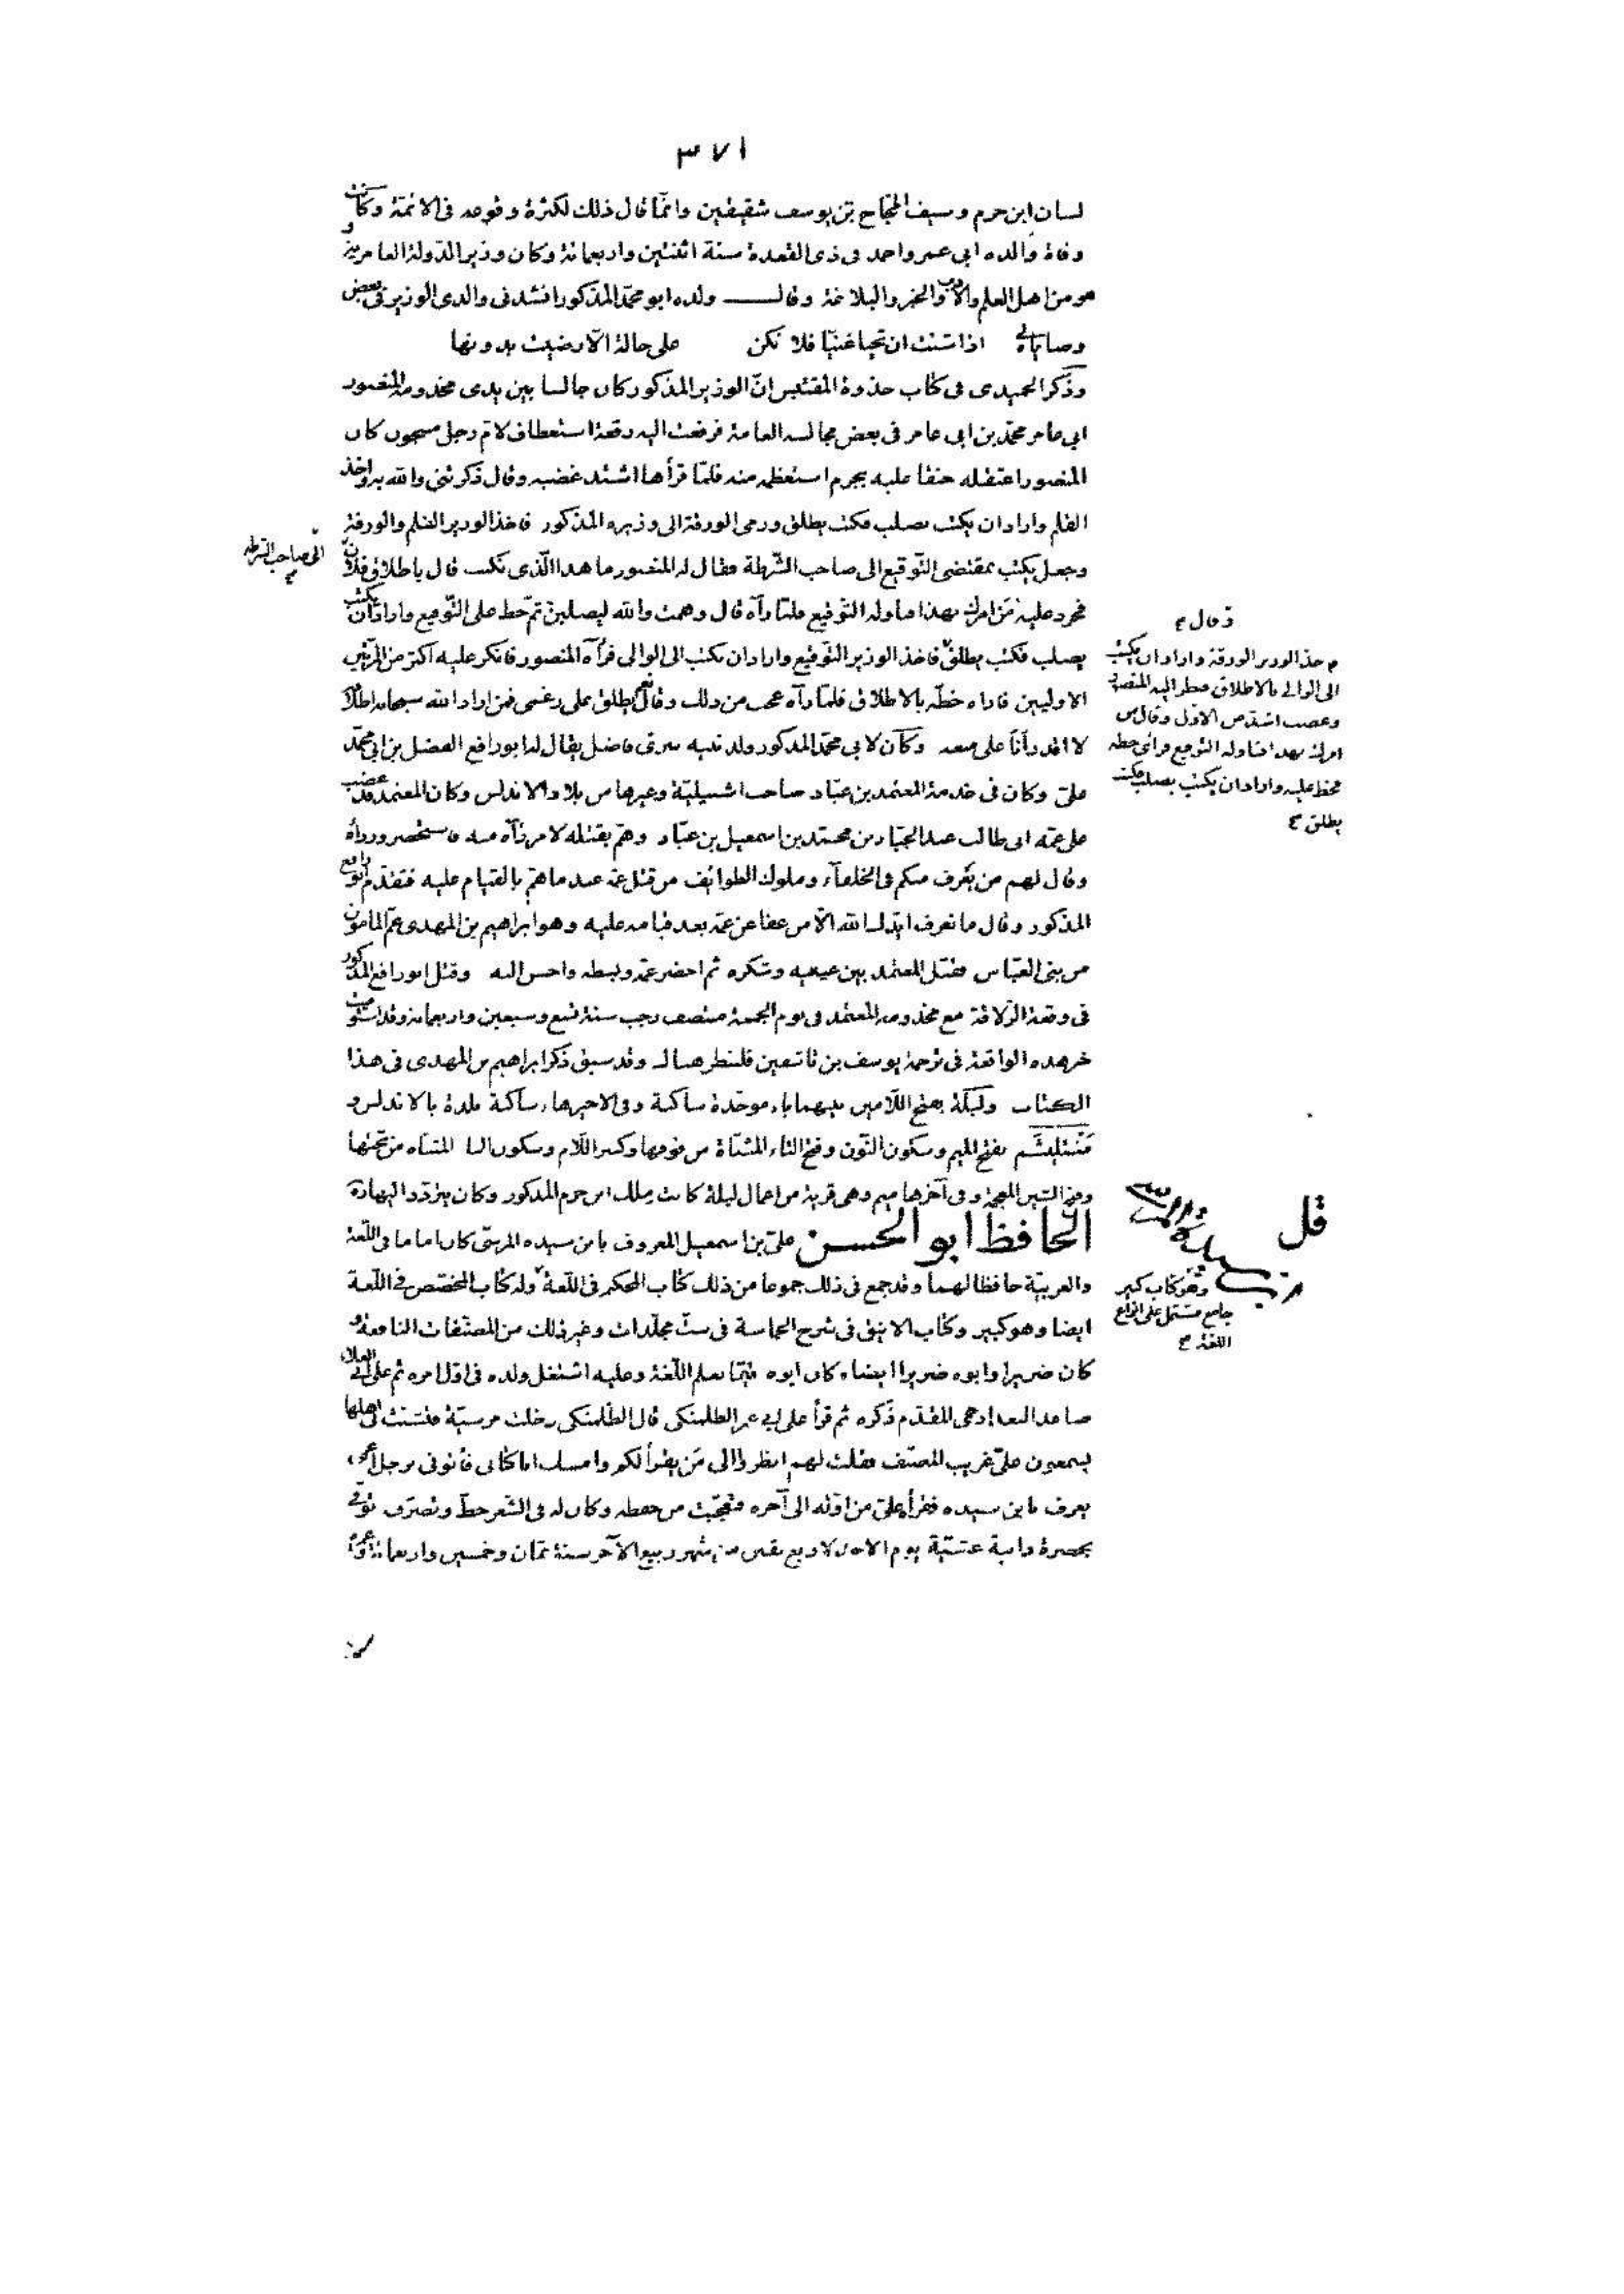 ٣٧١
لسان ابن حزم وسيف الحجاج بن يوسف شقيقين وانما قال ذلك لكثرة وقوعه فى الائمة وكانت
وفاة والده ابي عمر واحمد فى ذى القعدة سنة اثنتين واربعمائة وكان وزير الدولة العامرية و
هو من اهل العلم والادب والخير والبلاغة وقال ولده ابو محمد المذكور انشدنى والدى الوزير فى بعض
وصاياه لي اذا شئت ان تحيا غنيا فلا تكن على حالة الا رضيت بدونها
وذكر الحميدى فى كتاب جذوة المقتبس ان الوزير المذكور كان جالسا بين يدى مخدومه المنصور
ابي عامر محمد بن ابي عامر فى بعض مجالسه العامة فرفعت اليه رقعة استعطاف لام رجل مسجون كان
المنصور اعتقله حنقا عليه بجرم استعظمه منه فلما قرأها اشتد غضبه وقال ذكرتنى والله به واخذ
القلم واراد ان يكتب يصلب فكتب يطلق ورمى الورقة الى وزيره المذكور فاخذ الوزير القلم والورقة
وجعل يكتب بمقتضى التوقيع الى صاحب الشرطة فقال له المنصور ما هذا الذى تكتب قال باطلاق فلان
الى صاحب الشرطة
فحرد عليه من امرك بهذا فناوله التوقيع فلما رآه قال وهمت والله ليصلبن ثم خط على التوقيع واراد ان يكتب
وقال
يصلب فكتب يطلق فاخذ الوزير التوقيع واراد ان يكتب الى الوالى فرآه المنصور فانكر عليه اكثر من المرتين
الاوليين فاراه خطه بالاطلاق فلما رآه عجب من ذلك وقال نعم يطلق على رغمى فمن اراد الله سبحانه اطلاقه
لا اقدر انا على منعه وكان لابي محمد المذكور ولد نبيه سرى فاضل يقال له ابو رافع الفضل بن ابي محمد
على وكان فى خدمة المعتمد بن عباد صاحب اشبيلية وغيرها من بلاد الاندلس وكان المعتمد قد غضب
على عمه ابى طالب عبد الجبار بن محمد بن اسمعيل بن عباد وهم بقتله لامر رآه منه فاستحضر وزراءه
وقال لهم من يعرف منكم فى الخلفآء وملوك الطوائف من قتل عمه عندما هم بالقيام عليه فتقدم ابو رافع
المذكور وقال ما نعرف ايدك الله الا من عفا عن عمه بعد قيامه عليه وهو ابراهيم بن المهدى عم المامون
من بنى العباس فقبل المعتمد بين عينيه وشكره ثم احضر عمه وبسطه واحسن اليه وقتل ابو رافع المذكور
فى وقعة الزلاقة مع مخدومه المعتمد فى يوم الجمعة منتصف رجب سنة تسع وسبعين واربعمائة وقد استوفيت
خبر هذه الواقعة فى ترجمة يوسف بن تاشفين فلينظر هناك وقد سبق ذكر ابراهيم بن المهدى فى هذا
الكتاب ولبلة بفتح اللامين بينهما باء موحدة ساكنة وفى الاخير هاء ساكنة بلدة بالاندلس و
منتليشم بفتح الميم وسكون النون وفتح التاء المثناة من فوقها وكسر اللام وسكون اليا المثناه من تحتها
وفتح الشين المعجمة وفى آخرها ميم وهى قرية من اعمال لبلة كانت ملك ابن حزم المذكور وكان يتردد اليها
خذ الوزير الورقة واراد ان يكتب
الى الوالى بالاطلاق فنظر اليه المنصور
وغضب اشد من الاول وقال من
امرك بهذا فناوله التوقيع فرأى خطه
فخط عليه واراد ان يكتب يصلب فكتب
يطلق
قل
الحافظ ابو الحسن على بن اسمعيل المعروف بابن سيده المرسى كان اماما فى اللغة
والعربية حافظا لهما وقد جمع فى ذلك جموعا من ذلك كتاب المحكم فى اللغة وله كتاب المخصص فى اللغة
وهو كتاب كبير
جامع مشتمل على انواع
اللغة
ايضا وهو كبير وكتاب الانيق فى شرح الحماسة فى ست مجلدات وغير ذلك من المصنفات النافعة و
كان ضريرا وابوه ضريرا ايضا وكان ابوه قيما بعلم اللغة وعليه اشتغل ولده فى اول امره ثم على ابي العلاء
صاعد البغدادى المقدم ذكره ثم قرأ على ابي عمر الطلمنكى قال الطلمنكى دخلت مرسية فتشبث بى اهلها
يسمعون على غريب المصنف فقلت لهم انظروا الى من يقرأ لكم وامسك انا كتابى فأتونى برجل اعمى
يعرف بابن سيده فقرأه على من اوله الى آخره فتعجبت من حفظه وكان له فى الشعر حظ وتصرف توفي
بحضرة دانية عشية يوم الاحد لاربع بقين من شهر ربيع الآخر سنة ثمان وخمسين واربعمائة وعمره